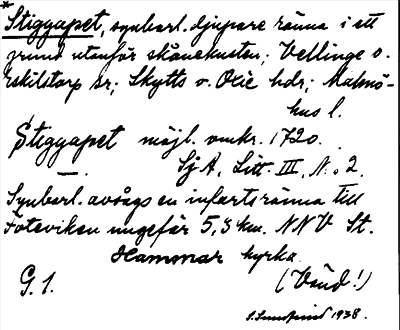 * Stiggapet, synbarl. djupare ränna i ett
grund utanför skånekusten; Vellinge o.
Eskilstorp sr; Skytts o. Oxie hdr; Malmö-
hus l.
Stiggapet möjl. omkr. 1720.
SjA, Litt. III, N:o 2.
Synbarl. avsågs en infartsränna till
Foteviken ungefär 5,3 km. NNV St.
Hammar kyrka.
G. 1. (Vänd!)
1938.